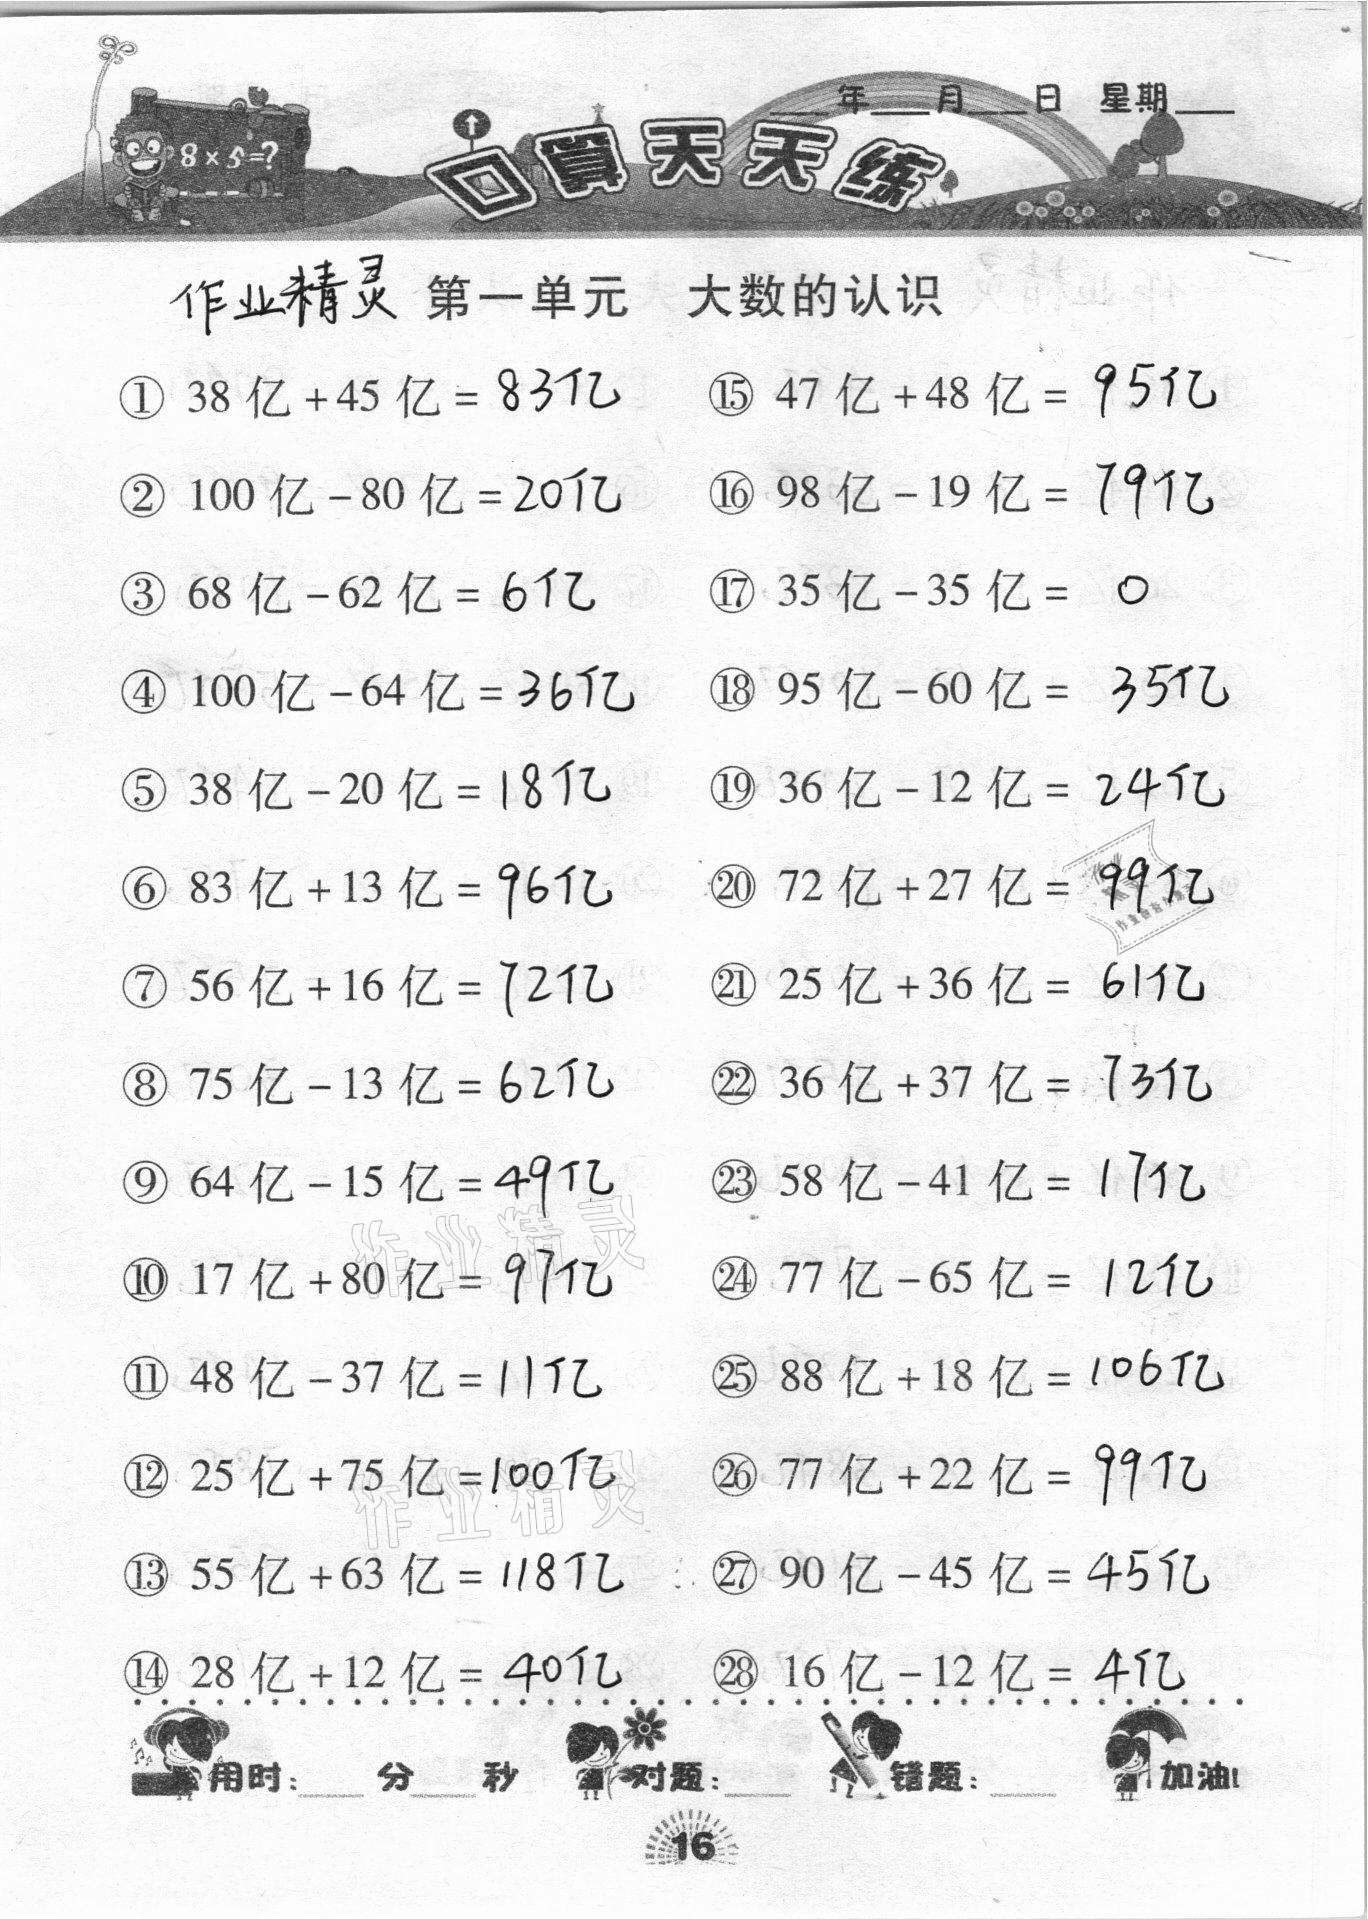 ____年____月____日 星期____
8×5=?
口算天天练
作业精灵 第一单元 大数的认识
① 38亿+45亿=83亿
② 100亿-80亿=20亿
③ 68亿-62亿=6亿
④ 100亿-64亿=36亿
⑤ 38亿-20亿=18亿
⑥ 83亿+13亿=96亿
⑦ 56亿+16亿=72亿
⑧ 75亿-13亿=62亿
⑨ 64亿-15亿=49亿
⑩ 17亿+80亿=97亿
⑪ 48亿-37亿=11亿
⑫ 25亿+75亿=100亿
⑬ 55亿+63亿=118亿
⑭ 28亿+12亿=40亿
⑮ 47亿+48亿=95亿
⑯ 98亿-19亿=79亿
⑰ 35亿-35亿=0
⑱ 95亿-60亿=35亿
⑲ 36亿-12亿=24亿
⑳ 72亿+27亿=99亿
㉑ 25亿+36亿=61亿
㉒ 36亿+37亿=73亿
㉓ 58亿-41亿=17亿
㉔ 77亿-65亿=12亿
㉕ 88亿+18亿=106亿
㉖ 77亿+22亿=99亿
㉗ 90亿-45亿=45亿
㉘ 16亿-12亿=4亿
作业精灵
作业精灵
用时:____分____秒 对题:____ 错题:____ 加油!
16